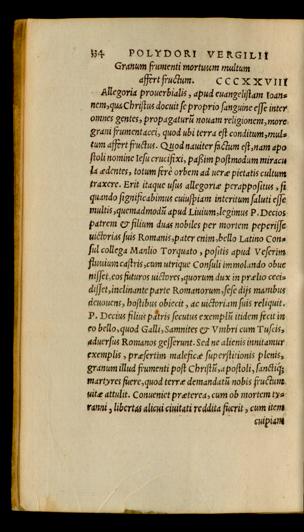 334 POLYDORI VERGILII
Granum frumenti mortuum multum
affert fructum. CCCXXVIII
Allegoria prouerbialis, apud euangelistam Ioan-
nem, qua Christus docuit se proprio sanguine esse inter
omnes gentes, propagaturũ nouam religionem, more
grani frumentacei, quod ubi terra est conditum, mul-
tum affert fructus. Quod nauiter factum est, nam apo
stoli nomine Iesu crucifixi, passim postmodum miracu
la ædentes, totum ferè orbem ad ueræ pietatis cultum
traxere. Erit itaque usus allegoriæ perappositus, si
quando significabimus cuiuspiam interitum saluti esse
multis, quemadmodũ apud Liuium, legimus P. Decios
patrem & filium duas nobiles per mortem peperisse
uictorias suis Romanis, pater enim, bello Latino Con-
sul collega Manlio Torquato, positis apud Veserim
fluuium castris, cum utrique Consuli immolando obue
nisset, eos futuros uictores, quorum dux in prælio ceci-
disset, inclinante parte Romanorum, sese dijs manibus
deuouens, hostibus obiecit, ac uictoriam suis reliquit.
P. Decius filius patris secutus exemplũ itidem fecit in
eo bello, quod Galli, Samnites & Vmbri cum Tuscis,
aduersus Romanos gesserunt. Sed ne alienis innitamur
exemplis, præsertim maleficæ superstitionis plenis,
granum illud frumenti post Christũ, apostoli, sanctiq;
martyres fuere, quod terræ demandatũ nobis fructum
uitæ attulit. Conueniet præterea, cum ob mortem ty-
ranni, libertas alicui ciuitati reddita fuerit, cum item
cuipiam